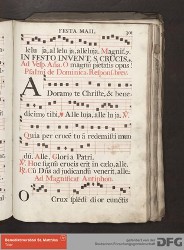 FESTA MAII.
lelu ia, al le lu ia, alleluja. Magnif.
IN FESTO INVENT. S. CRUCIS.
Ad Vesp. Ana. O magnũ pietatis opus!
Psalmi de Dominica. Respons. breve.
A Doramo te Christe, & bene-
dicimo tibi, * Alle luja, alle lu ja. V.
Quia per cruce tu ã redemisti mun
dũ. Alle. Gloria Patri.
V. Hoc signũ crucis erit in cælo, alle.
R. Cũ Dñs ad judicandũ venerit, alle.
Ad Magnificat Antiphon.
O Crux splẽdi di or cunctis
DFG